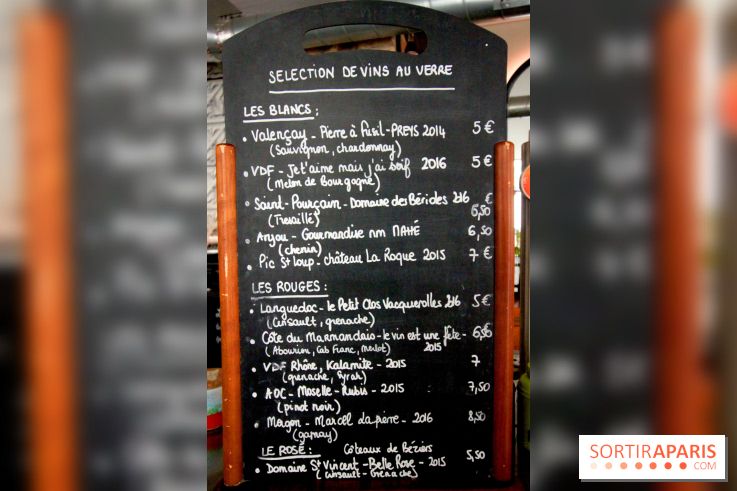 SELECTION DE VINS AU VERRE
LES BLANCS :
• Valençay - Pierre à Fusil - PREYS 2014 5 €
(Sauvignon, chardonnay)
• VDF - Je t'aime mais j'ai soif 2016 5 €
(Melon de Bourgogne)
• Saint-Pourçain - Domaine des Bérioles 2016 6,50 €
(Tresaillé)
• Anjou - Gourmandise nm 6,50
(chenin)
• Pic St Loup - château La Roque 2015 7 €
LES ROUGES :
• Languedoc - le Petit Clos Vacquerolles 2016 5 €
(Cinsault, grenache)
• Côte du Marmandais - le vin est une fête - 6,50
(Abouriou, Cab Franc, Merlot) 2015
• VDF Rhône, Kalamite - 2015 7
(grenache, Syrah)
• AOC - Moselle - Rubis - 2015 7,50
(pinot noir)
• Morgon - Marcel Lapierre - 2016 8,50
(gamay)
LE ROSÉ : Côteaux de Béziers
• Domaine St Vincent - Belle Rose - 2015 5,50
(Cinsault - Grenache)
SORTIRAPARIS
.COM